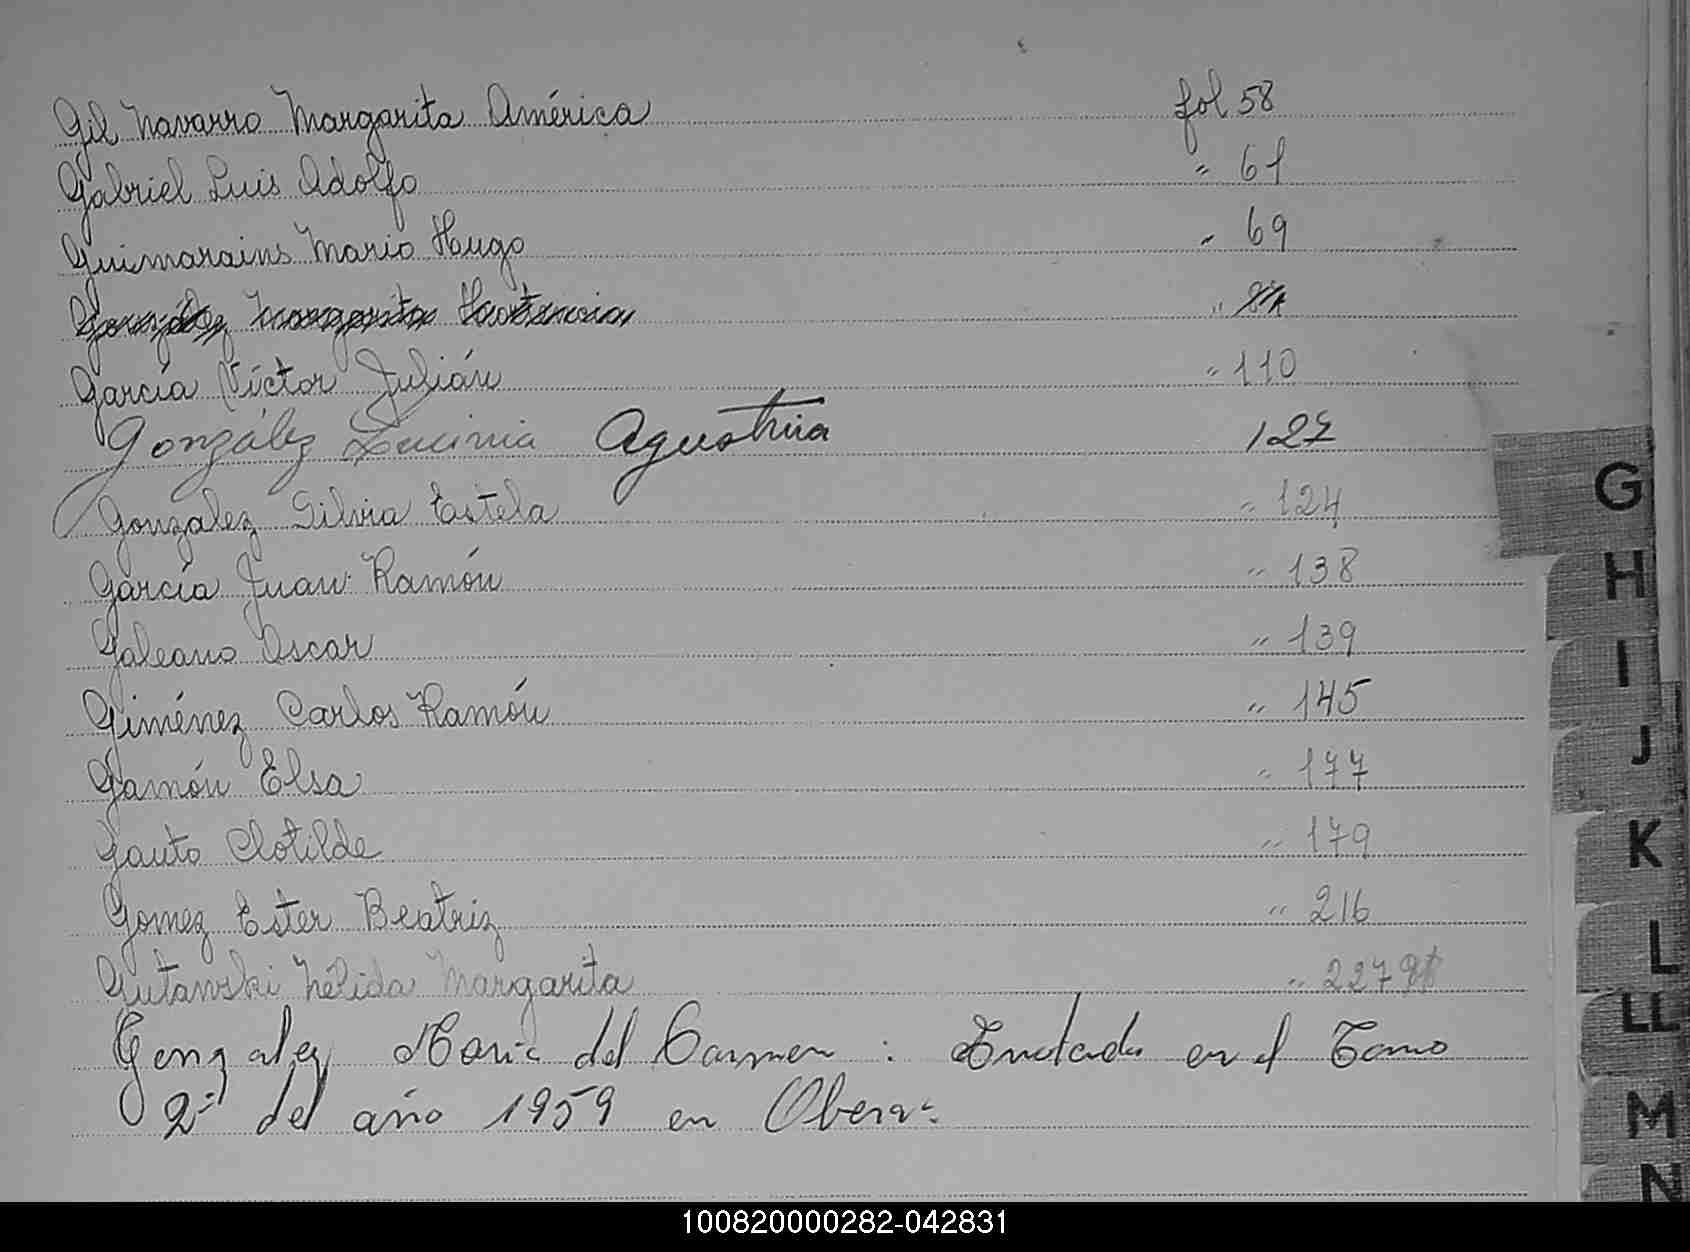 Gil Navarro Margarita América fol 58
Gabriel Luis Adolfo " 61
Guimarains Mario Hugo " 69
González Margarita Hortencia "
García Víctor Julián " 110
González Lucinia Agustina 127
Gonzalez Silvia Estela " 124
García Juan Ramón " 138
Galeano Oscar " 139
Giménez Carlos Ramón " 145
Gamón Elsa " 177
Gauto Clotilde " 179
Gomez Ester Beatriz " 216
Gutawski Nélida Margarita " 227
Gonzalez Maria del Carmen : en el Tomo
2º del año 1959 en Obera.
G
H
I
J
K
L
LL
M
N
100820000282-042831